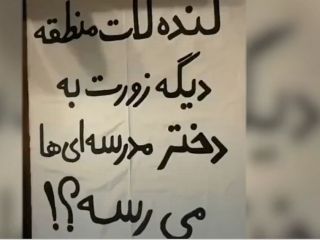 لنده لات منطقه
دیگه زورت به
دختر مدرسه‌ای‌ها
می‌رسه؟!